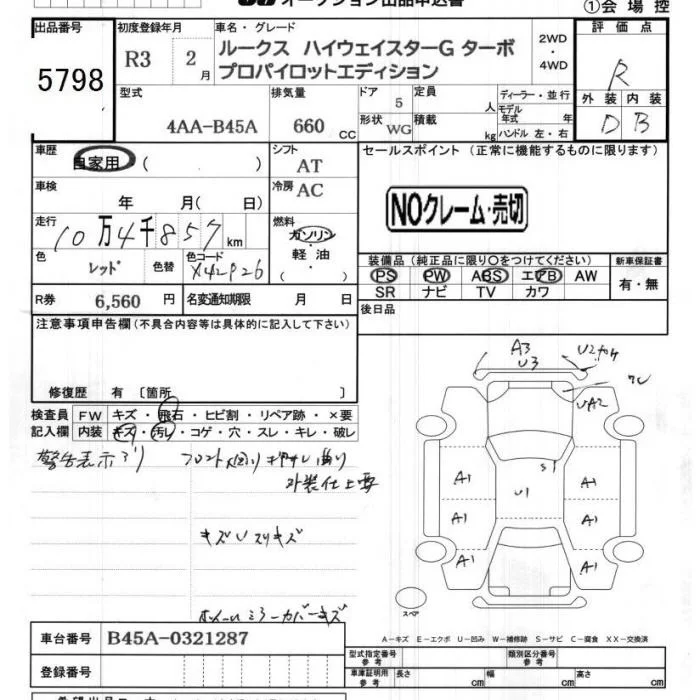 オークション出品申込書
①会場控
出品番号
5798
初度登録年月
R3 2月
車名・グレード
ルークス ハイウェイスターG ターボ
プロパイロットエディション
2WD
・
4WD
評価点
R
外装 内装
D B
型式
4AA-B45A
排気量
660 CC
ドア
5
定員
人
形状
WG
積載
kg
ディーラー・並行
モデル年式 年
ハンドル 左・右
車歴
自家用 ( )
シフト
AT
車検
年 月( 日)
冷房
AC
走行
10万4千857km
燃料
ガソリン
・
軽油
( ・ )
色
レッド
色替
色コード
R券 6,560 円
名変通知期限 月 日
セールスポイント (正常に機能するものに限ります)
NOクレーム・売切
装備品(純正品に限り〇をつけてください)
PS PW ABS エアB AW
SR ナビ TV カワ
新車保証書
有・無
後日品
注意事項申告欄(不具合内容等は具体的に記入して下さい)
修復歴 有〔箇所 〕
検査員 FW キズ・飛石・ヒビ割・リペア跡・×要
記入欄 内装 キズ・汚レ・コゲ・穴・スレ・キレ・破レ
警告表示アリ
外装仕上要
キズUスリキズ
ホイールミラーカバーキズ
A3
U3
U2
UA2
S1
U1
A1
A1
A1
A1
A1
A1
スペア
A-キズ E-エクボ U-凹み W-補修跡 S-サビ C-腐食 XX-交換済
車台番号 B45A-0321287
登録番号
型式指定番号
参考
類別区分番号
参考
車庫証明用
参考
長さ cm
幅 cm
高さ cm